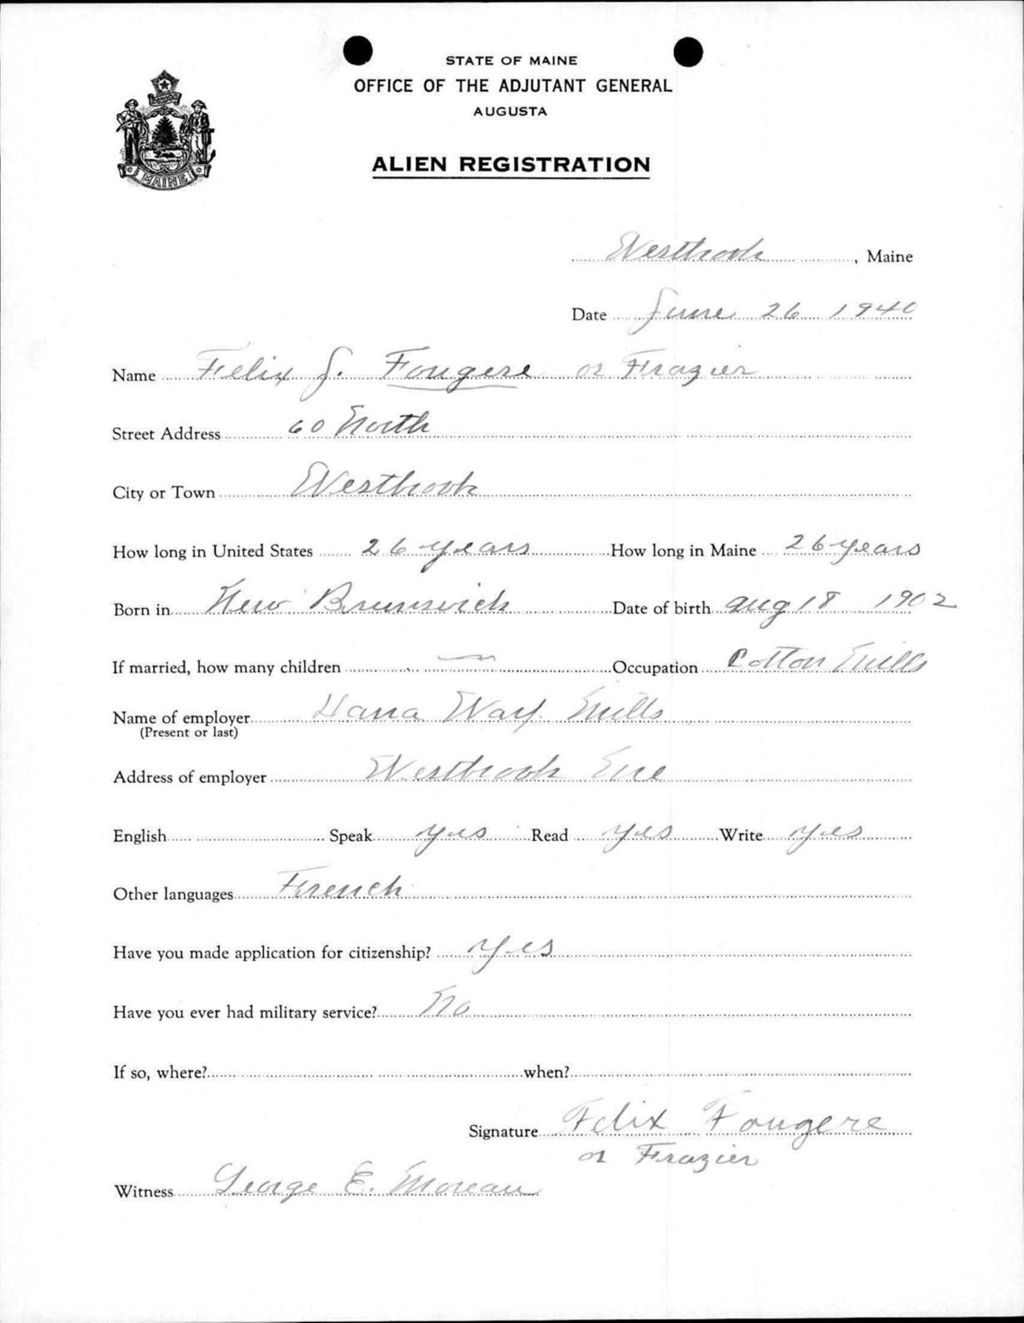 STATE OF MAINE
OFFICE OF THE ADJUTANT GENERAL
AUGUSTA
ALIEN REGISTRATION
MAINE
Westbrook, Maine
Date June 26 1940
Name Felix J. Fougere or Frazier
Street Address 60 North
City or Town Westbrook
How long in United States 26 years How long in Maine 26 years
Born in New Brunswick Date of birth Aug 18 1902
If married, how many children — Occupation Cotton Mills
Name of employer Dana Warp Mills
(Present or last)
Address of employer Westbrook Me
English Speak yes Read yes Write yes
Other languages French
Have you made application for citizenship? yes
Have you ever had military service? No
If so, where? when?
Signature Felix Fougere
or Frazier
Witness George E. Moreau